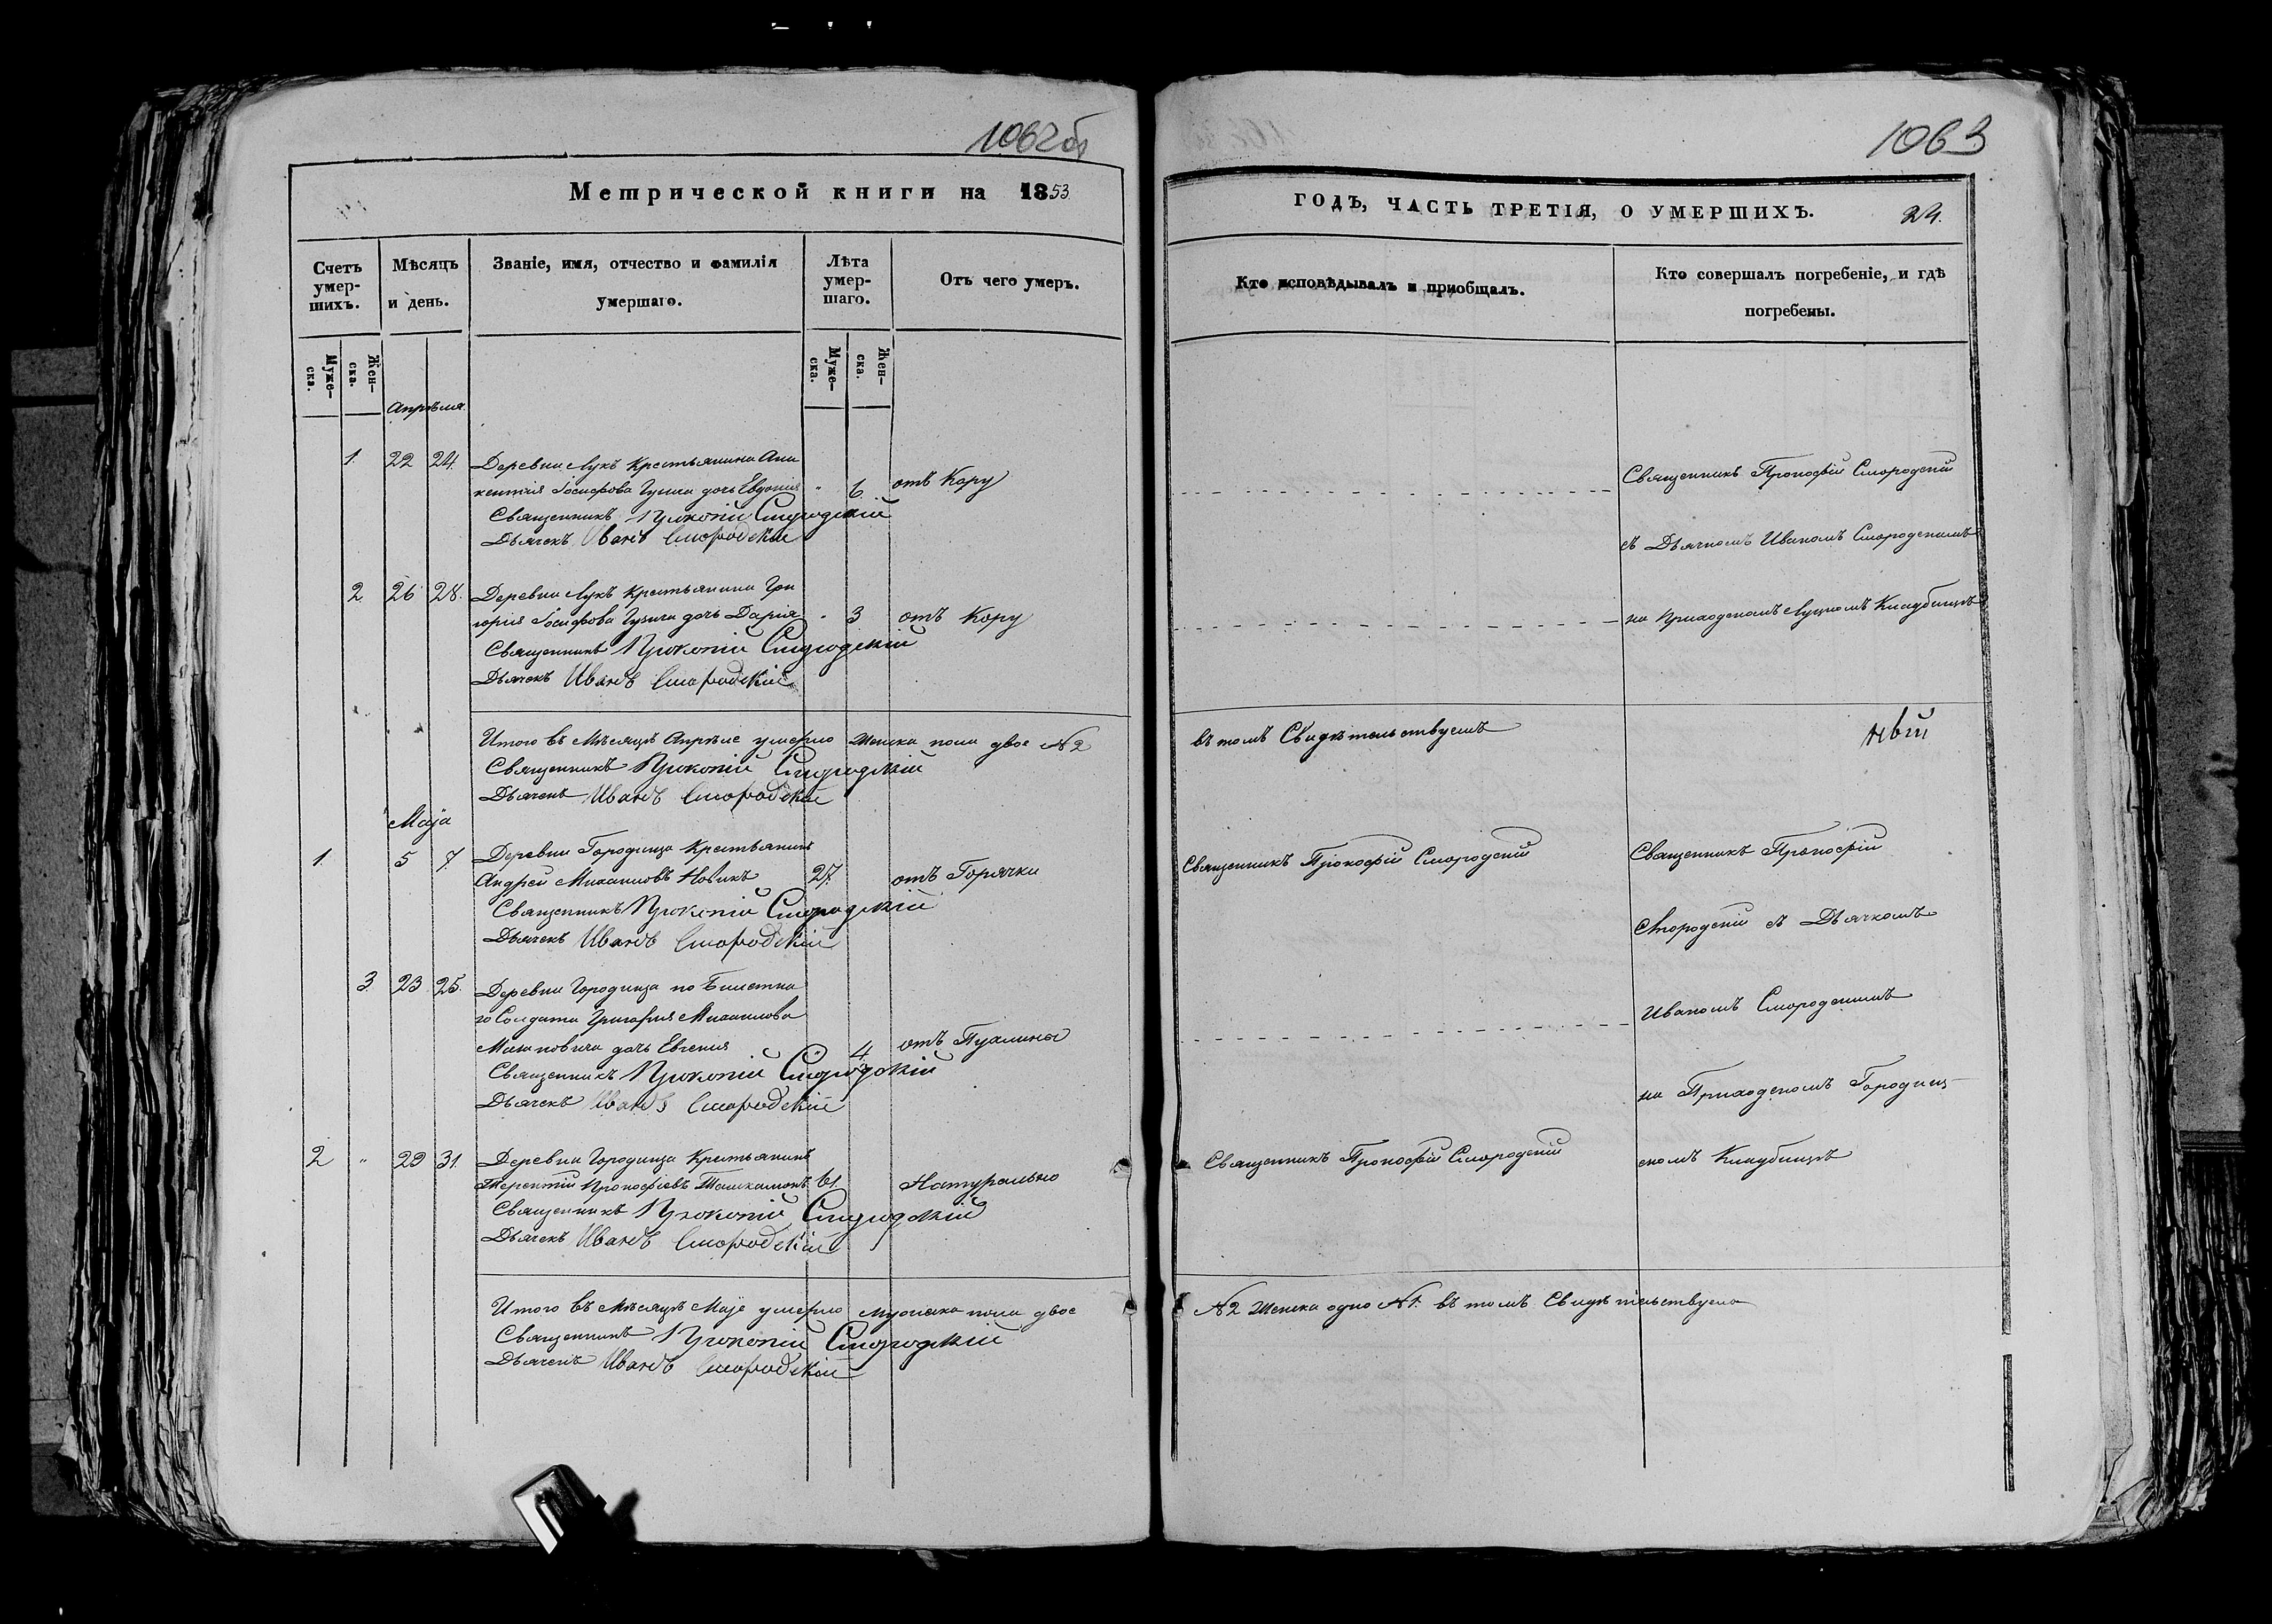 1062об
Метрической книги на 1853
Счетъ умер-шихъ.
Мѣсяцъ и день.
Званіе, имя, отчество и фамилія умершаго.
Лѣта умер-шаго.
Отъ чего умеръ.
Муже-ска.
Жен-ска.
Муже-ска.
Жен-ска.
Апрѣля
1. 22 24. Деревни Лукъ Крестьянина
Іосифова дочь Евдокія " 6 отъ Кору
Священникъ Прокопій Смородскій
Дьячекъ Иванъ Смородскій
2. 26 28. Деревни Лукъ Крестьянина Гри
горія Іосифова дочь Дарія " 3 отъ Кору
Священникъ Прокопій Смородскій
Дьячекъ Иванъ Смородскій
Итого въ Мѣсяцѣ Апрѣле умерло Женска пола двое №2
Священникъ Прокопій Смородскій
Дьячекъ Иванъ Смородскій
Маја
1. 5 7. Деревни Городища Крестьянинъ
Андрей Михаиловъ Новикъ 27. отъ Горячки
Священникъ Прокопій Смородскій
Дьячекъ Иванъ Смородскій
3. 23 25. Деревни Городища по Билетна
го Солдата Григорія Михаилова
дочь Евгенія " 4. отъ
Священникъ Прокопій Смородскій
Дьячекъ Иванъ Смородскій
2 " 29 31. Деревни Городища Крестьянинъ
Терентій Прокофіевъ 61. Натурально
Священникъ Прокопій Смородскій
Дьячекъ Иванъ Смородскій
Итого въ Мѣсяцѣ Маје умерло мужеска пола двое
Священникъ Прокопій Смородскій
Дьячекъ Иванъ Смородскій
1063
ГОДЪ, ЧАСТЬ ТРЕТІЯ, О УМЕРШИХЪ. 24.
Кто исповѣдывалъ и пріобщалъ.
Кто совершалъ погребеніе, и гдѣ погребены.
Священникъ Прокофій Смородскій
съ Дьячкомъ Иваномъ Смородскимъ
на Приходскомъ Луцкомъ Кладбищѣ
въ томъ Свидѣтельствуемъ
Священникъ Прокофій Смородскій Священникъ Прокофій
Смородскій съ Дьячкомъ
Иваномъ Смородскимъ
на Приходскомъ Городищ-
Священникъ Прокофій Смородскій скомъ Кладбищѣ
№2 Женска одно №1. въ томъ